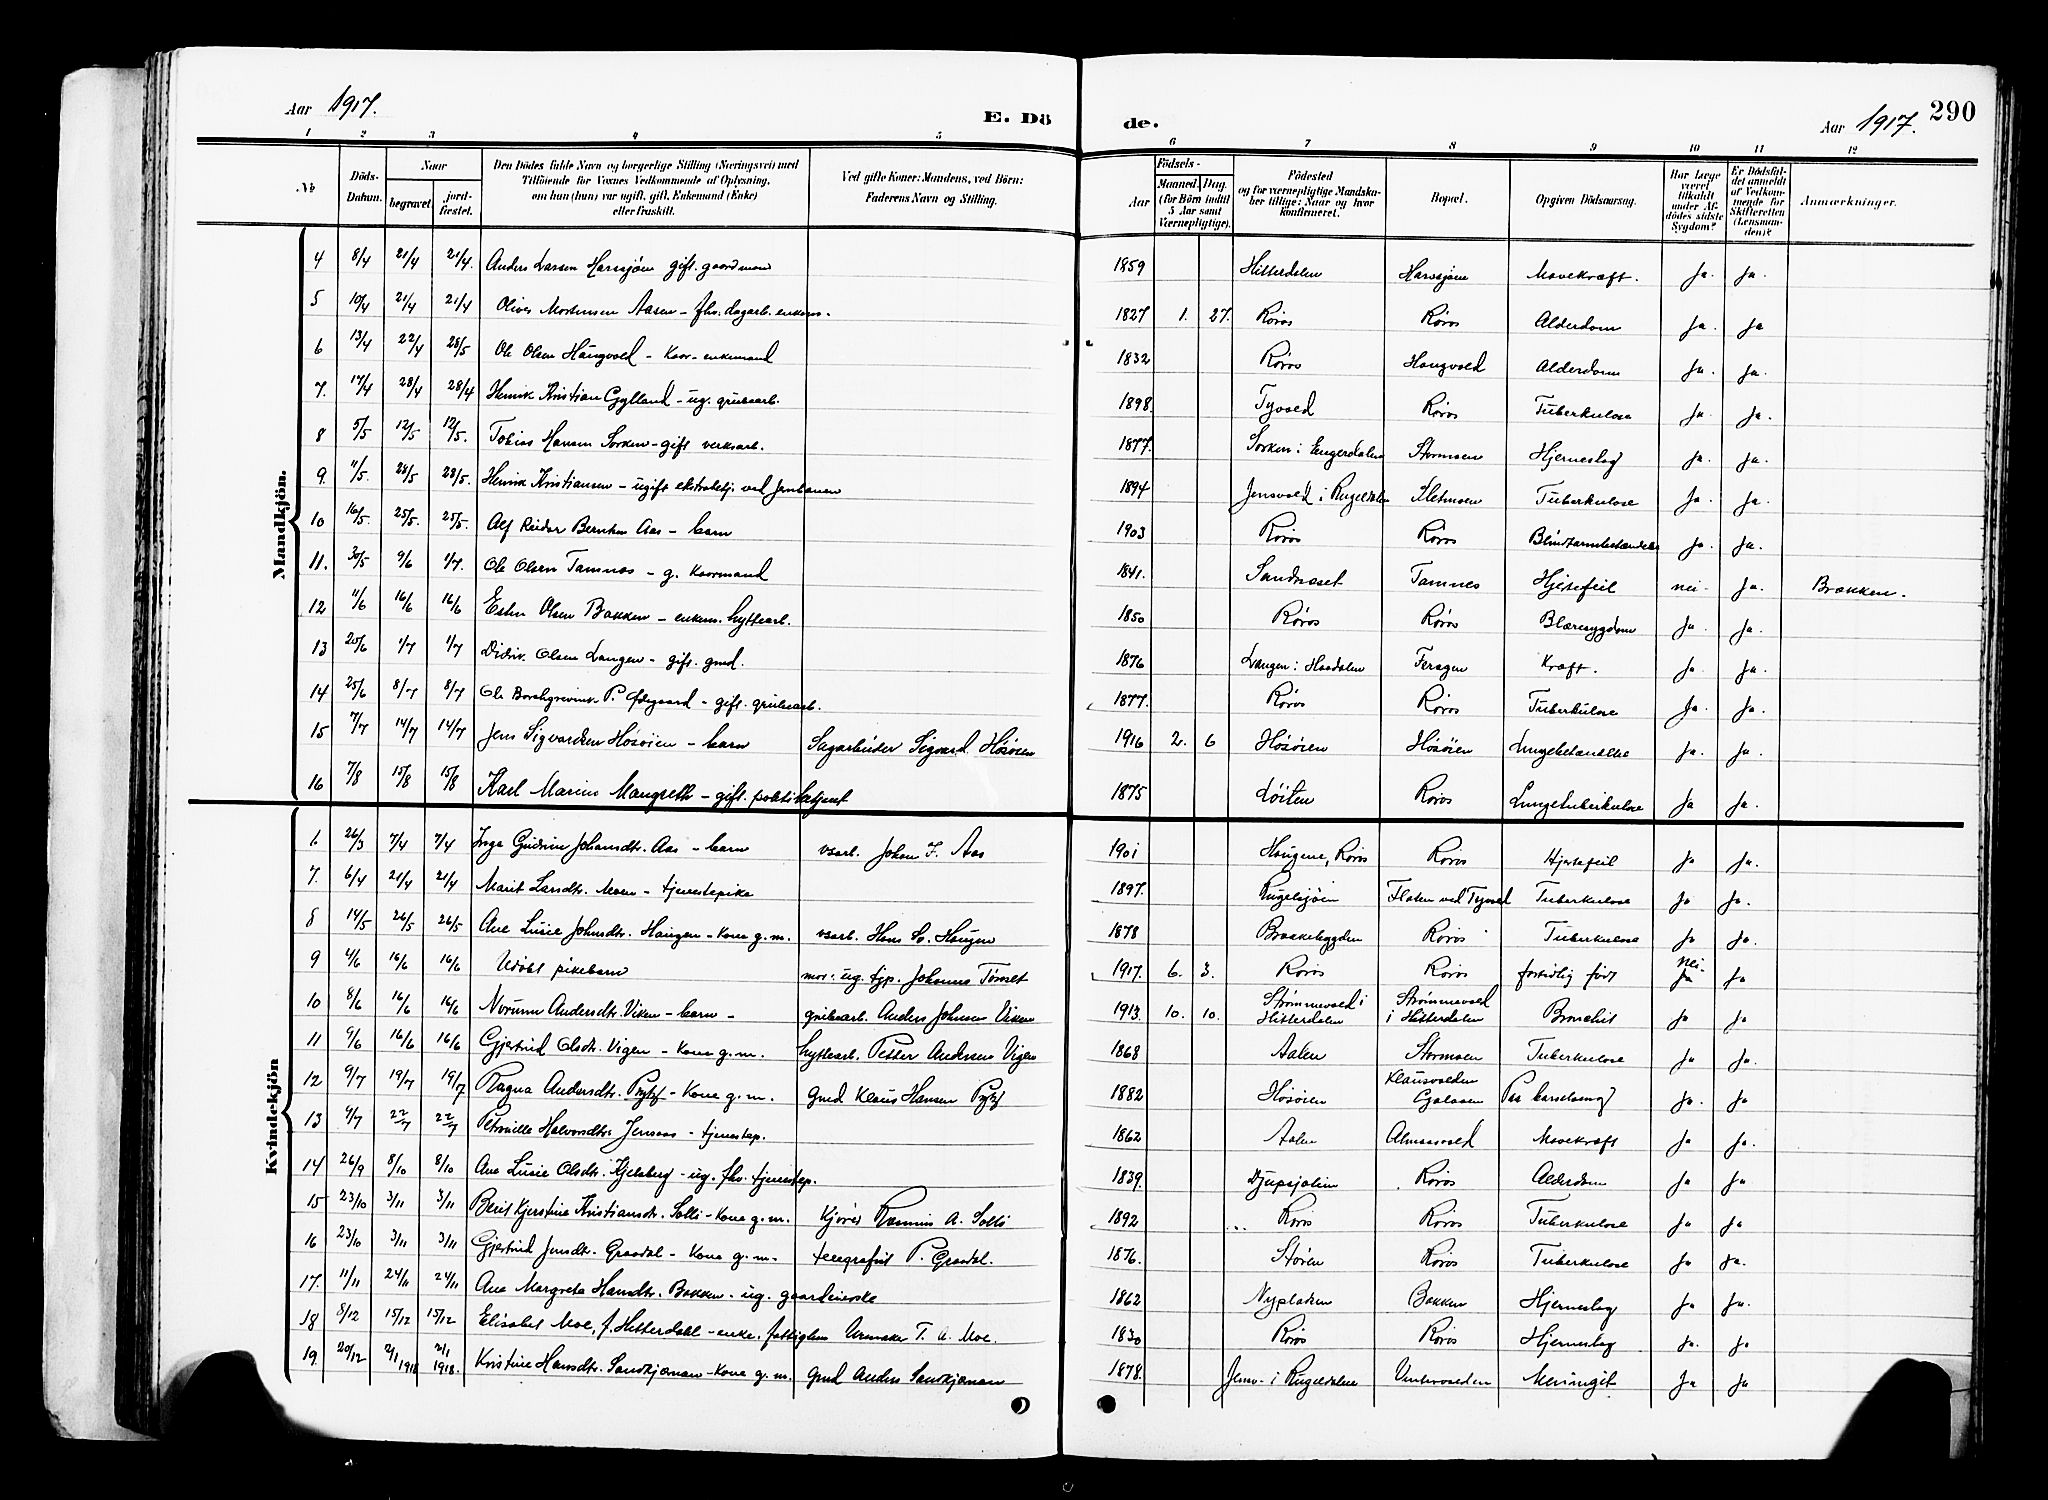 Aar 1917.
E. Dö
de.
Aar 1917.
290
1 2 3 4 5
6 7 8 9 10 11 12
No
Döds-Datum.
Naar
begravet.
jord-fæstet.
Den Dödes fulde Navn og borgerlige Stilling (Næringsvei) med
Tilföiende for Voxnes Vedkommende af Oplysning,
om han (hun) var ugift, gift, Enkemand (Enke)
eller fraskilt.
Ved gifte Koner: Mandens, ved Börn:
Faderens Navn og Stilling.
Födsels-
Aar
Maaned. Dag.
(for Börn indtil
5 Aar samt
Værnepligtige).
Födested
og for værnepligtige Mandska-
ber tillige: Naar og hvor
konfirmeret.
Bopæl.
Opgiven Dödsaarsag.
Har Læge
været
tilkaldt
under Af-
dödes sidste
Sygdom?
Er Dödsfal-
det anmeldt
af Vedkom-
mende for
Skifteretten
(Lensman-
den)?
Anmærkninger.
Mandkjön.
4 8/4 21/4 21/4. Anders Larsen Harsjøen gift. gaardman 1859 Hitterdalen Harsjøen Mavekræft. Ja. Ja.
5 10/4 21/4 21/4 Oliver Mortensen Aasen - fhv. dagarb. enkem. 1827 1. 27. Røros Røros Alderdom Ja. Ja
6 13/4 22/4 28/5 Ole Olsen Haugvold - Kaar - enkemand 1832 Røros Haugvold Alderdom Ja. Ja.
7. 17/4 28/4 28/4 Henrik Kristian Gylland - ug. grubearb. 1898. Tyvold Røros Tuberkulose Ja. Ja.
8 5/5 12/5 12/5. Tobias Hansen Sorken - gift verksarb. 1877. Sorken i Engerdalen Stormoen Hjerneslag Ja. Ja.
9. 11/5. 28/5 28/5. Henrik Kristiansen - ugift ekstrabetj. ved Jernbanen 1894 Jensvold i Rugeldalen Sletmoen Tuberkulose Ja. Ja.
10 16/5. 25/5. 25/5. Alf Reidar Berntsen Aas - barn 1903 Røros Røros Blindtarmbetændelse Ja. Ja.
11. 30/5 9/6 1/7. Ole Olsen Tamnes - g. Kaarmand 1841. Sandvaset Tamnes Hjertefeil nei. Ja. Brækken.
12 11/6 16/6 16/6 Esten Olsen Bakken - enkem. hyttearb. 1850 Røros Røros Blæresygdom Ja. Ja.
13 20/6 1/7 1/7 Didrik Olsen Langen - gift. gmd. 1876 Langen i Haadalen Feragen Kræft. Ja Ja.
14 25/6 8/7 8/7 Ole Borchgrevink P. Ødegaard - gift. grubearb. 1877. Røros Røros Tuberkulose Ja. Ja.
15 7/7 14/7 14/7 Jens Sigvardsen Høsøien - barn Sagarbeider Sigvard Høsøien 1916 2. 6 Høsøien Høsøien Lungebetændelse Ja. Ja.
16 7/8 15/8 15/8 Karl Marius Mangseth - gift. politibetjent 1875 Løiten Røros Lungetuberkulose Ja Ja.
Kvindekjön
6 26/3 7/4 7/4 Inga Gudrun Johansdtr. Aas - barn vsarb. Johan J. Aas 1901 Haugene, Røros Røros Hjertefeil Ja Ja.
7. 6/4 21/4 21/4 Marit Larsdtr. Moen - tjenestepike 1897. Rugelsjøen Floten ved Tyvold Tuberkulose Ja Ja.
8 14/5 26/5 26/5 Ane Lusie Johnsdtr. Haugen - Kone g.m. vsarb. Hans Sv. Haugen 1878 Brækkebygden Røros Tuberkulose Ja Ja.
9 4/6 16/6 16/6 Udøbt pikebarn mor: ug. tjp. Johanna Tømset 1917. 6. 3. Røros Røros fortidlig født nei. Ja Ja
10 8/6 16/6 16/6 Norunn Andersdtr. Viken - barn - grubearb. Anders Johnsen Viken 1913. 10. 10. Strømmevold i Hitterdalen Strømmevold i Hitterdalen Bronchit Ja Ja
11 9/6 16/6 16/6 Gjertrud Olsdtr. Vigen - Kone g.m. hyttearb. Petter Andersen Vigen 1868 Aalen Stormoen Tuberkulose Ja Ja.
12 9/7 19/7 19/7 Ragna Andersdtr. Prytz - Kone g.m. Gmd Klaus Hansen Prytz 1882 Høsøien Klausvolden Galaaen Paa barselseng Ja. Ja
13 9/7 22/7 22/7 Petronille Halvorsdtr. Jensaas - tjenestep. 1862 Aalen Almaasvold Mavekræft Ja Ja.
14 26/9 8/10 8/10 Ane Lusie Olsdtr. Kjelsberg - ug. fhv. tjenestep. 1839. Djupsjølien Røros Alderdom Ja Ja
15 23/10 3/11 3/11 Berit Kjerstine Kristiansdtr. Solli - Kone g.m. Kjører Rasmus A. Solli 1892 Røros Røros Tuberkulose Ja Ja
16 23/10 3/11 3/11 Gjertrud Jensdtr. Graadal - Kone g.m. telegrafist P. Graadal. 1876. Støren Røros Tuberkulose Ja Ja.
17. 11/11 24/11 24/11 Ane Margreta Hansdtr. Bakken - ug. gaardeierske 1862 Nypladsen Bakken Hjerneslag Ja Ja.
18 8/12 15/12 15/12 Elisabet Moe, f. Hitterdahl - enke, fattiglem Urmaker T. A. Moe. 1830 Røros Røros Hjerneslag Ja. Ja
19. 20/12 2/1 1918 2/1 1918. Kristine Hansdtr. Sandkjernan - Kone g.m. Gmd Anders Sandkjernan 1878. Jensv. i Rugeldalen Vintervolden Meningit Ja Ja